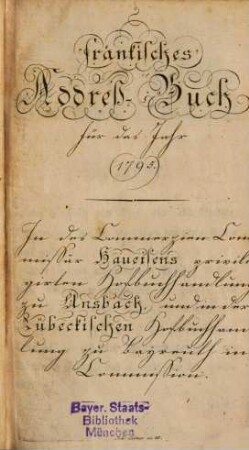 Fränkisches
Address-Buch
für das Jahr
(1795.)
In des Commerzien Com¬
missär Haueisens privile¬
girten Hofbuchhandlung
zu Ansbach und in der
Lübeckischen Hofbuchhand¬
lung zu Bayreuth in
Commission.
Bayer. Staats-
Bibliothek
München